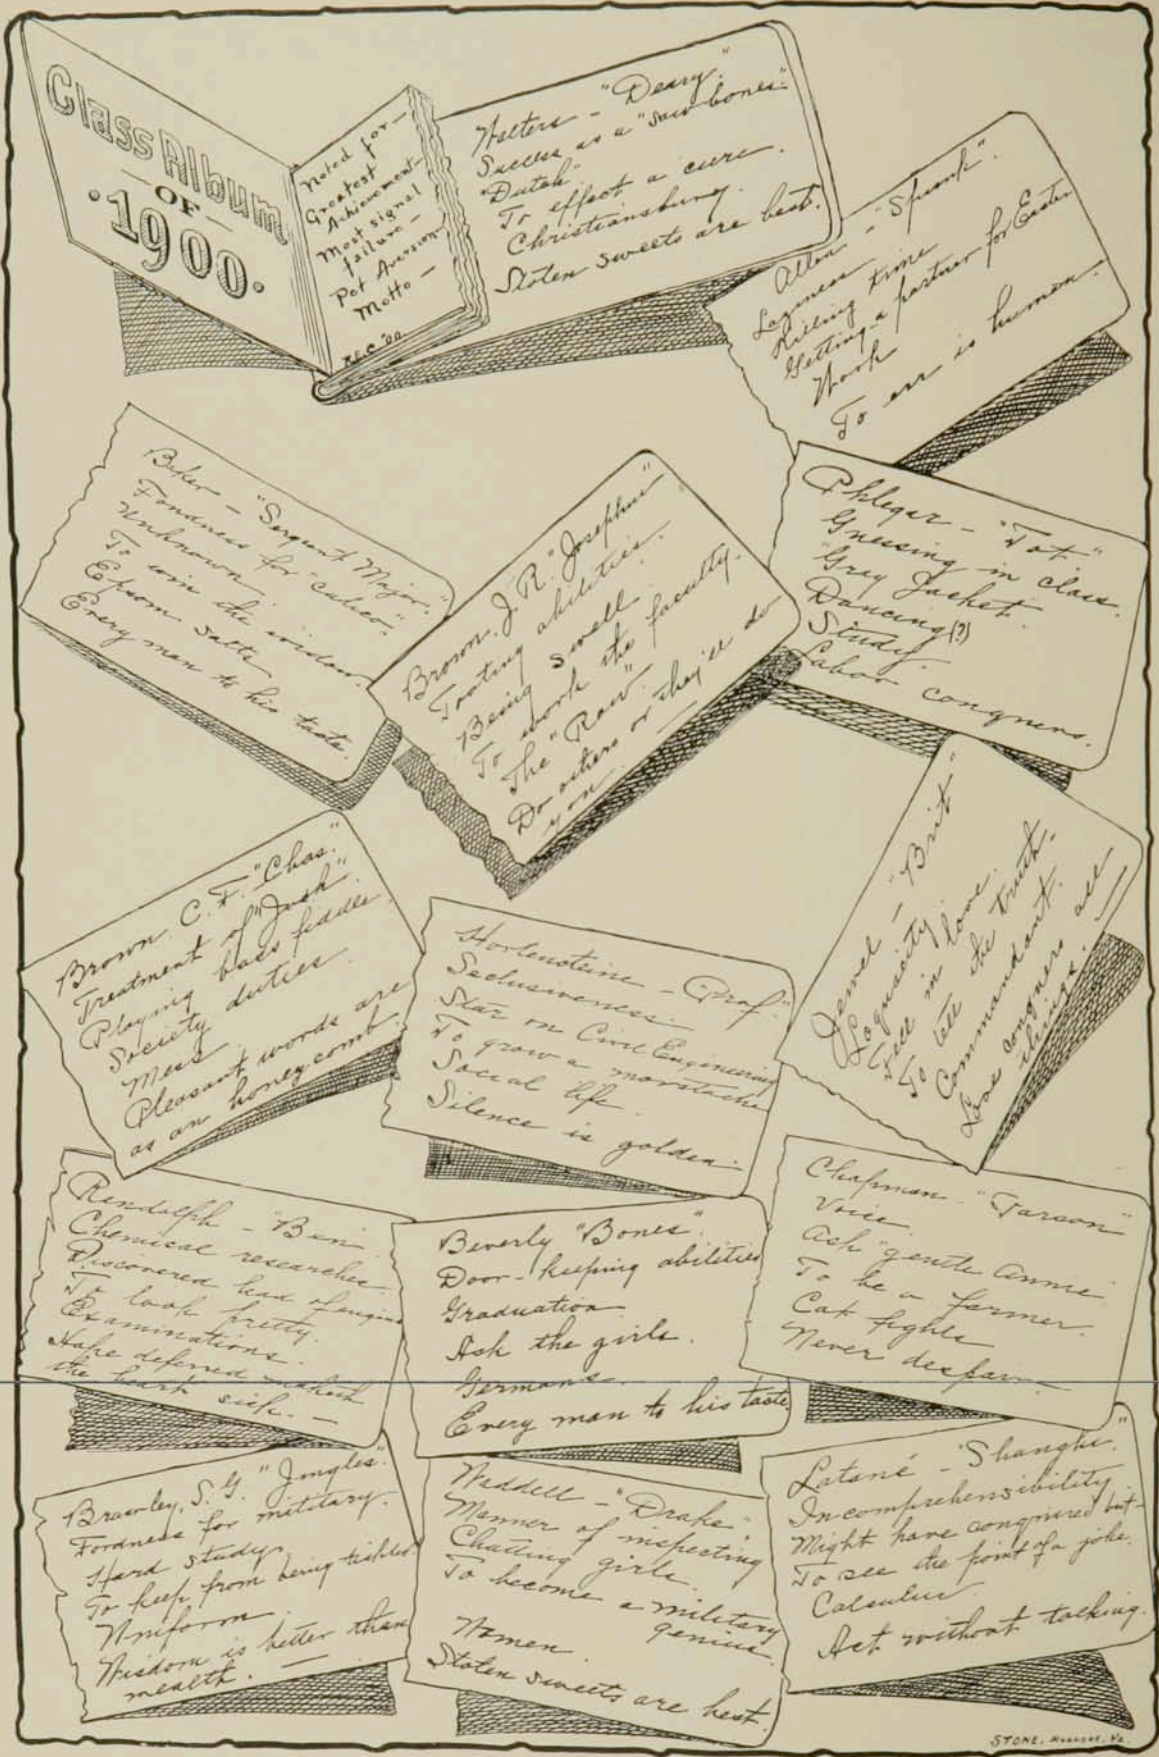 Class Album
OF
1900.
Noted for—
Greatest
Achievement—
Most signal
failure—
Pet Aversion—
Motto—
Walters - "Deary."
Success as a "Saw bones."
"Dutch".
To effect a cure.
Christiansburg.
Stolen sweets are best.
Allen - "Spunk".
Laziness
Killing time
Getting a partner for Easter
Work
To err is human.
Baker - "Sergeant Major."
Fondness for "calico."
Unknown
To win the widow.
Epsom salts
Every man to his taste.
Brown, J. R. "Josephus"
Tooting abilities.
Being swell
To work the faculty.
The "Raw"
Do others or they'll do
you —
Phlegar - "Tot."
Guessing in class.
"Grey Jacket.
Dancing(?)
Study.
Labor conquers.
Brown C. F. "Chas."
Treatment of "Josh".
Playing bass fiddle.
Society duties
Mess
Pleasant words are
as an honeycomb.
Hortensteine - "Prof."
Seclusiveness.
Star on Civil Engineering
To grow a moustache
Social life.
Silence is golden.
Jewel - "Brit"
Loquacity
Fell in love.
To tell the truth.
Commandant.
Love conquers all
things.
Randolph - "Ben"
Chemical researches
Discovered head of engine
To look pretty.
Examinations.
Hope deferred maketh
the heart sick. —
Beverly "Bones".
Door-keeping abilities
Graduation
Ask the girls.
Germans.
Every man to his taste.
Chapman - "Parson"
Voice
Ask "gentle Annie
To be a farmer.
Cat fights
Never despair
Brawley, S. G. "Jingles".
Fondness for military.
Hard study.
To keep from being tickled
Uniform
Wisdom is better than
wealth. —
Waddell - "Drake".
Manner of inspecting
Chatting girls.
To become a military
genius.
Women
Stolen sweets are best.
Latané - "Shanghi."
Incomprehensibility
Might have conquered but-
To see the point of a joke.
Calculus
Act without talking.
STONE, ROANOKE, VA.